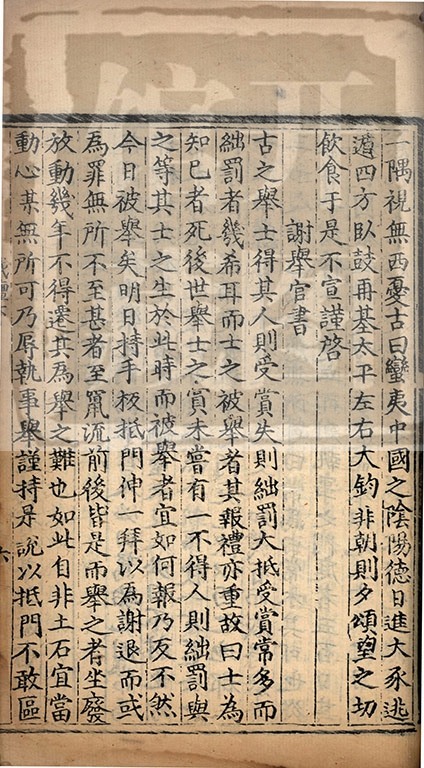 一隅視無西憂古曰蠻夷中國之陰陽德日進大豕逃
遁四方臥鼓再基太平左右大鈞非朝則夕頌望之切
飲食于是不宣謹啓
謝舉官書
古之舉士得其人則受賞失則絀罰大抵受賞常多而
絀罰者幾希耳而士之被舉者其報禮亦重故曰士為
知已者死後世舉士之賞未嘗有一不得人則絀罰與
之等其士之生於此時而被舉者宜如何報乃反不然
今日被舉矣明日持手板抵門伸一拜以為謝退而或
為罪無所不至甚者至竄流前後皆是而舉之者坐廢
放動幾年不得還其為舉之難也如此自非土石宜當
動心某無所可乃辱執事舉謹持是說以抵門不敢區
六